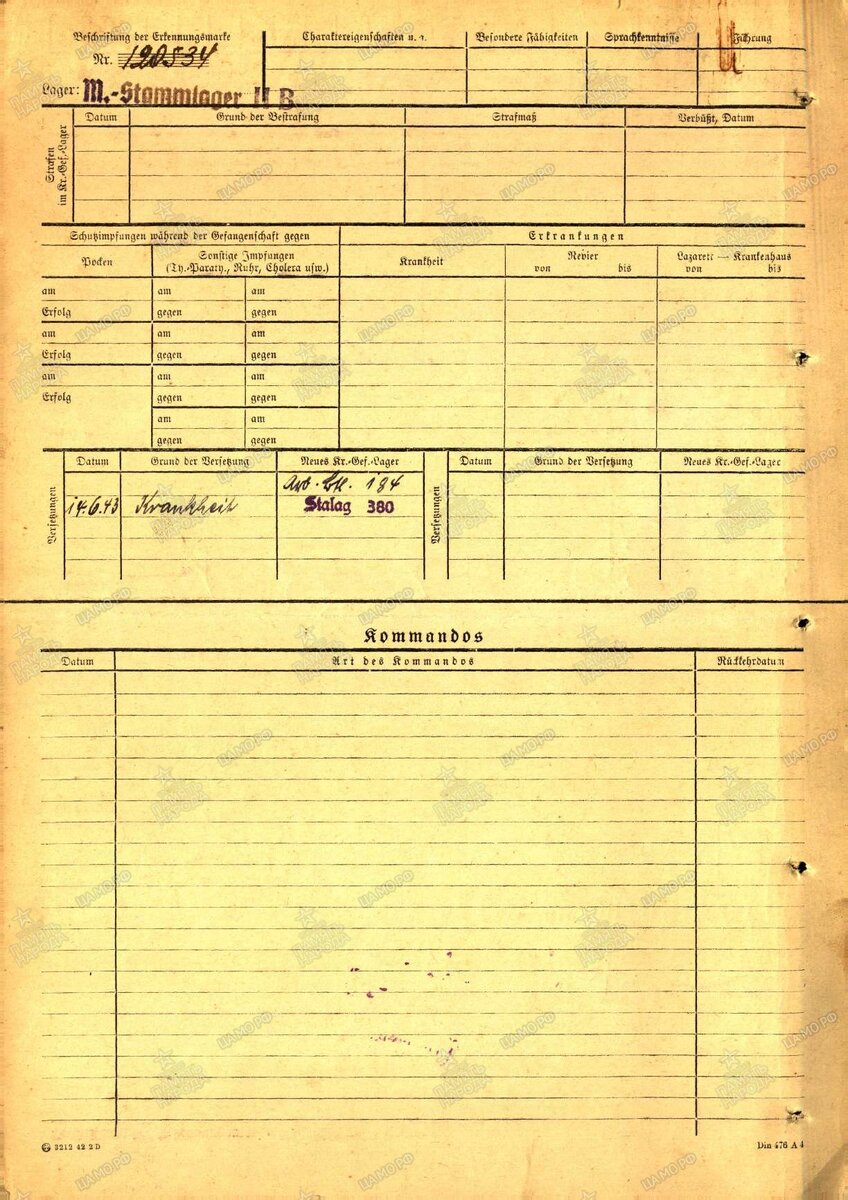 Beschriftung der Erkennungsmarke
Nr. 120534
Lager: M.-Stammlager II B
Charaktereigenschaften u. a.
Besondere Fähigkeiten
Sprachkenntnisse
Führung
Strafen im Kr.-Gef.-Lager
Datum
Grund der Bestrafung
Strafmaß
Verbüßt, Datum
Schutzimpfungen während der Gefangenschaft gegen
Erkrankungen
Pocken
Sonstige Impfungen
(Ty.-Paraty., Ruhr, Cholera usw.)
Krankheit
Revier
von bis
Lazarett — Krankenhaus
von bis
am am am
Erfolg gegen gegen
am am am
Erfolg gegen gegen
am am am
Erfolg gegen gegen
am am
gegen gegen
Versetzungen
Datum Grund der Versetzung Neues Kr.-Gef.-Lager
Arb. Btl. 184
14.6.43 Krankheit Stalag 380
Versetzungen
Datum Grund der Versetzung Neues Kr.-Gef.-Lager
Kommandos
Datum Art des Kommandos Rückkehrdatum
3212 42 2D
Din 476 A 4
ЦАМО РФ
ПАМЯТЬ НАРОДА